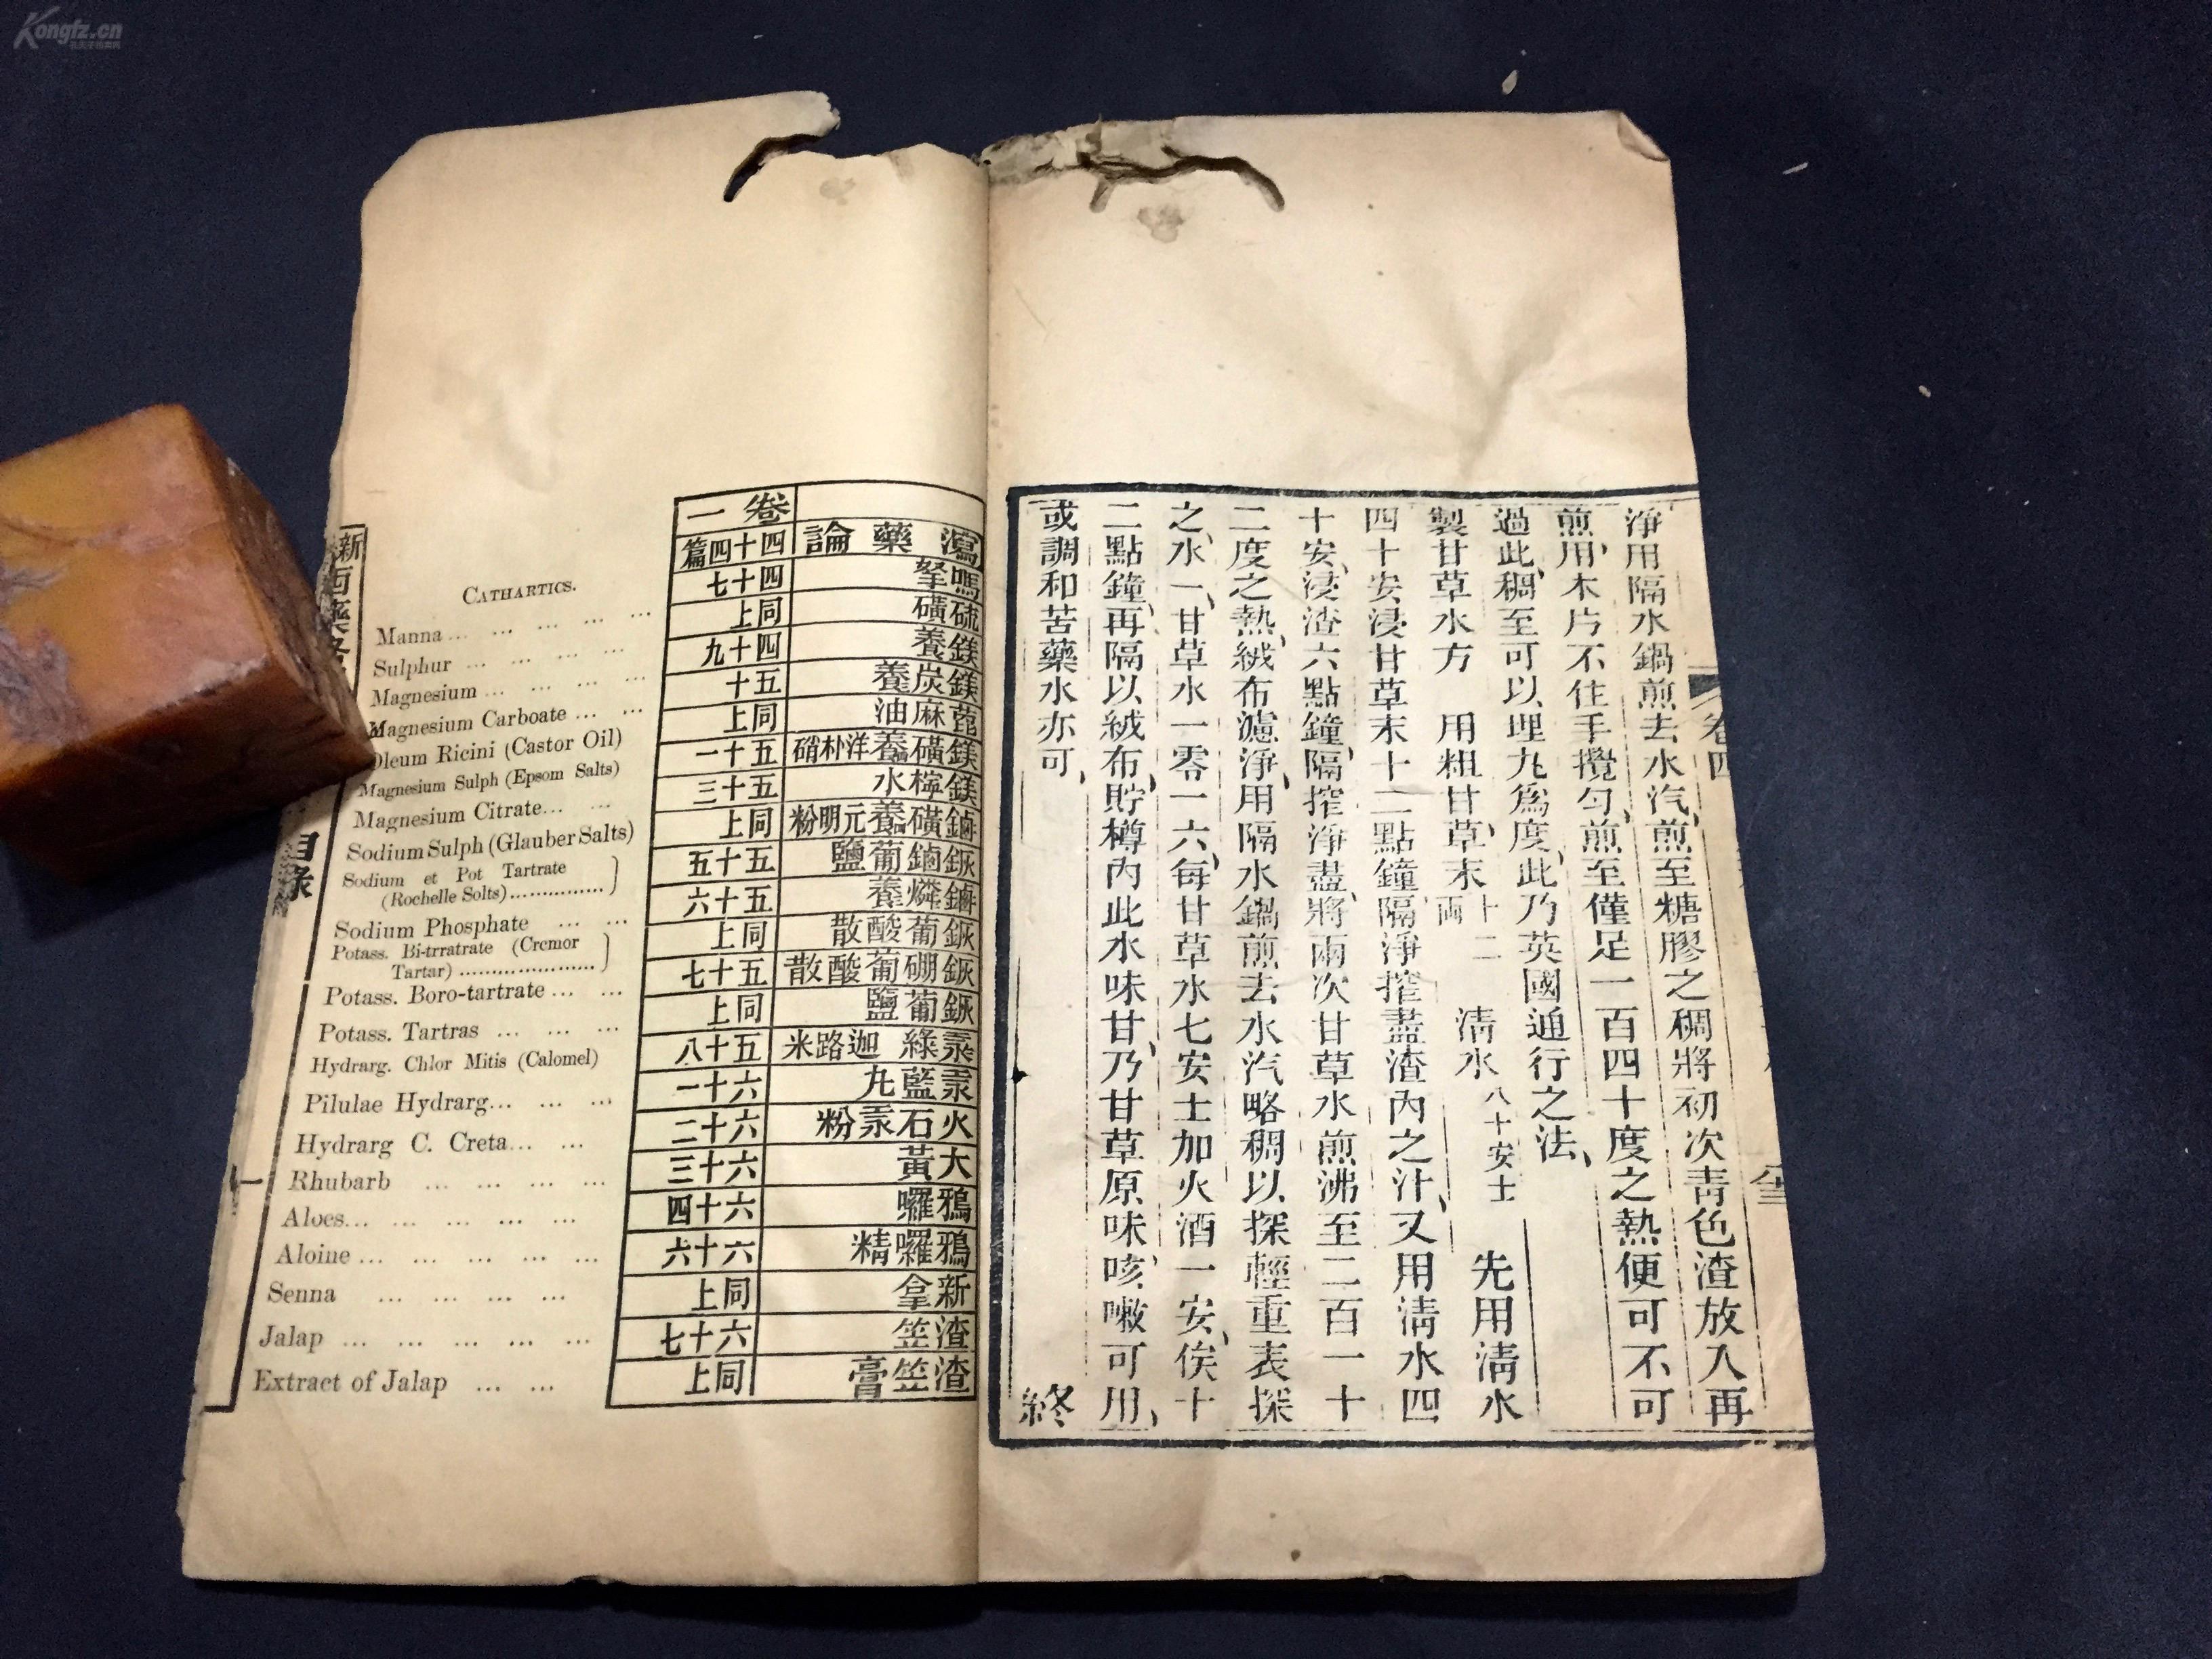 淨用隔水鍋煎去水汽、煎至糖膠之稠將初次靑色渣放入再
煎、用木片不住手攪勻、煎至僅足一百四十度之熱便可不可
過此、稠至可以埋丸爲度、此乃英國通行之法、
製甘草水方 用粗甘草末十二両 淸水八十安士 先用淸水
四十安浸甘草末十二點鐘隔淨搾盡渣內之汁、又用淸水四
十安、浸渣六點鐘、隔搾淨盡、將兩次甘草水煎沸至二百一十
二度之熱、絨布濾淨、用隔水鍋煎去水汽略稠以探輕重表探
之、水一、甘草水一零一六、每甘草水七安士加火酒一安、俟十
二點鐘、再隔以絨布、貯樽內此水味甘乃甘草原味、咳嗽可用、
或調和苦藥水亦可、 終
卷四
卷一
瀉藥論 四十四篇 CATHARTICS.
嗎拏 四十七 Manna ... ... ... ... ...
硫磺 同上 Sulphur ... ... ... ...
鎂養 四十九 Magnesium ... ... ... ...
鎂炭養 五十 Magnesium Carboate ... ...
蓖麻油 同上 Oleum Ricini (Castor Oil)
鎂磺養洋朴硝 五十一 Magnesium Sulph (Epsom Salts)
鎂檸水 五十三 Magnesium Citrate... ...
鏀磺養元明粉 同上 Sodium Sulph (Glauber Salts)
鏀葡鹽 五十五 Sodium et Pot Tartrate
(Rochelle Solts)...............
鏀燐養 五十六 Sodium Phosphate ... ...
葡酸散 同上 Potass. Bi-trratrate (Cremor
Tartar) .....................
硼葡酸散 五十七 Potass. Boro-tartrate ... ...
葡鹽 同上 Potass. Tartras ... ... ...
汞綠 迦路米 五十八 Hydrarg. Chlor Mitis (Calomel)
汞藍丸 六十一 Pilulae Hydrarg... ... ...
火石汞粉 六十二 Hydrarg C. Creta... ...
大黃 六十三 Rhubarb ... ... ... ...
鴉囉 六十四 Aloes... ... ... ... ...
鴉囉精 六十六 Aloine ... ... ... ... ...
新拿 同上 Senna ... ... ... ...
渣笠 六十七 Jalap ... ... ... ... ...
渣笠膏 同上 Extract of Jalap ... ...
新西藥
目錄
一
Kongfz.cn